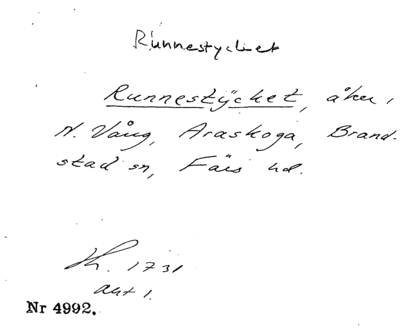 Runnestycket
Runnestÿcket, åker,
N. Vång, Araskoga, Brand-
stad sn, Färs hd.
Lh. 1731
akt 1.
Nr 4992.